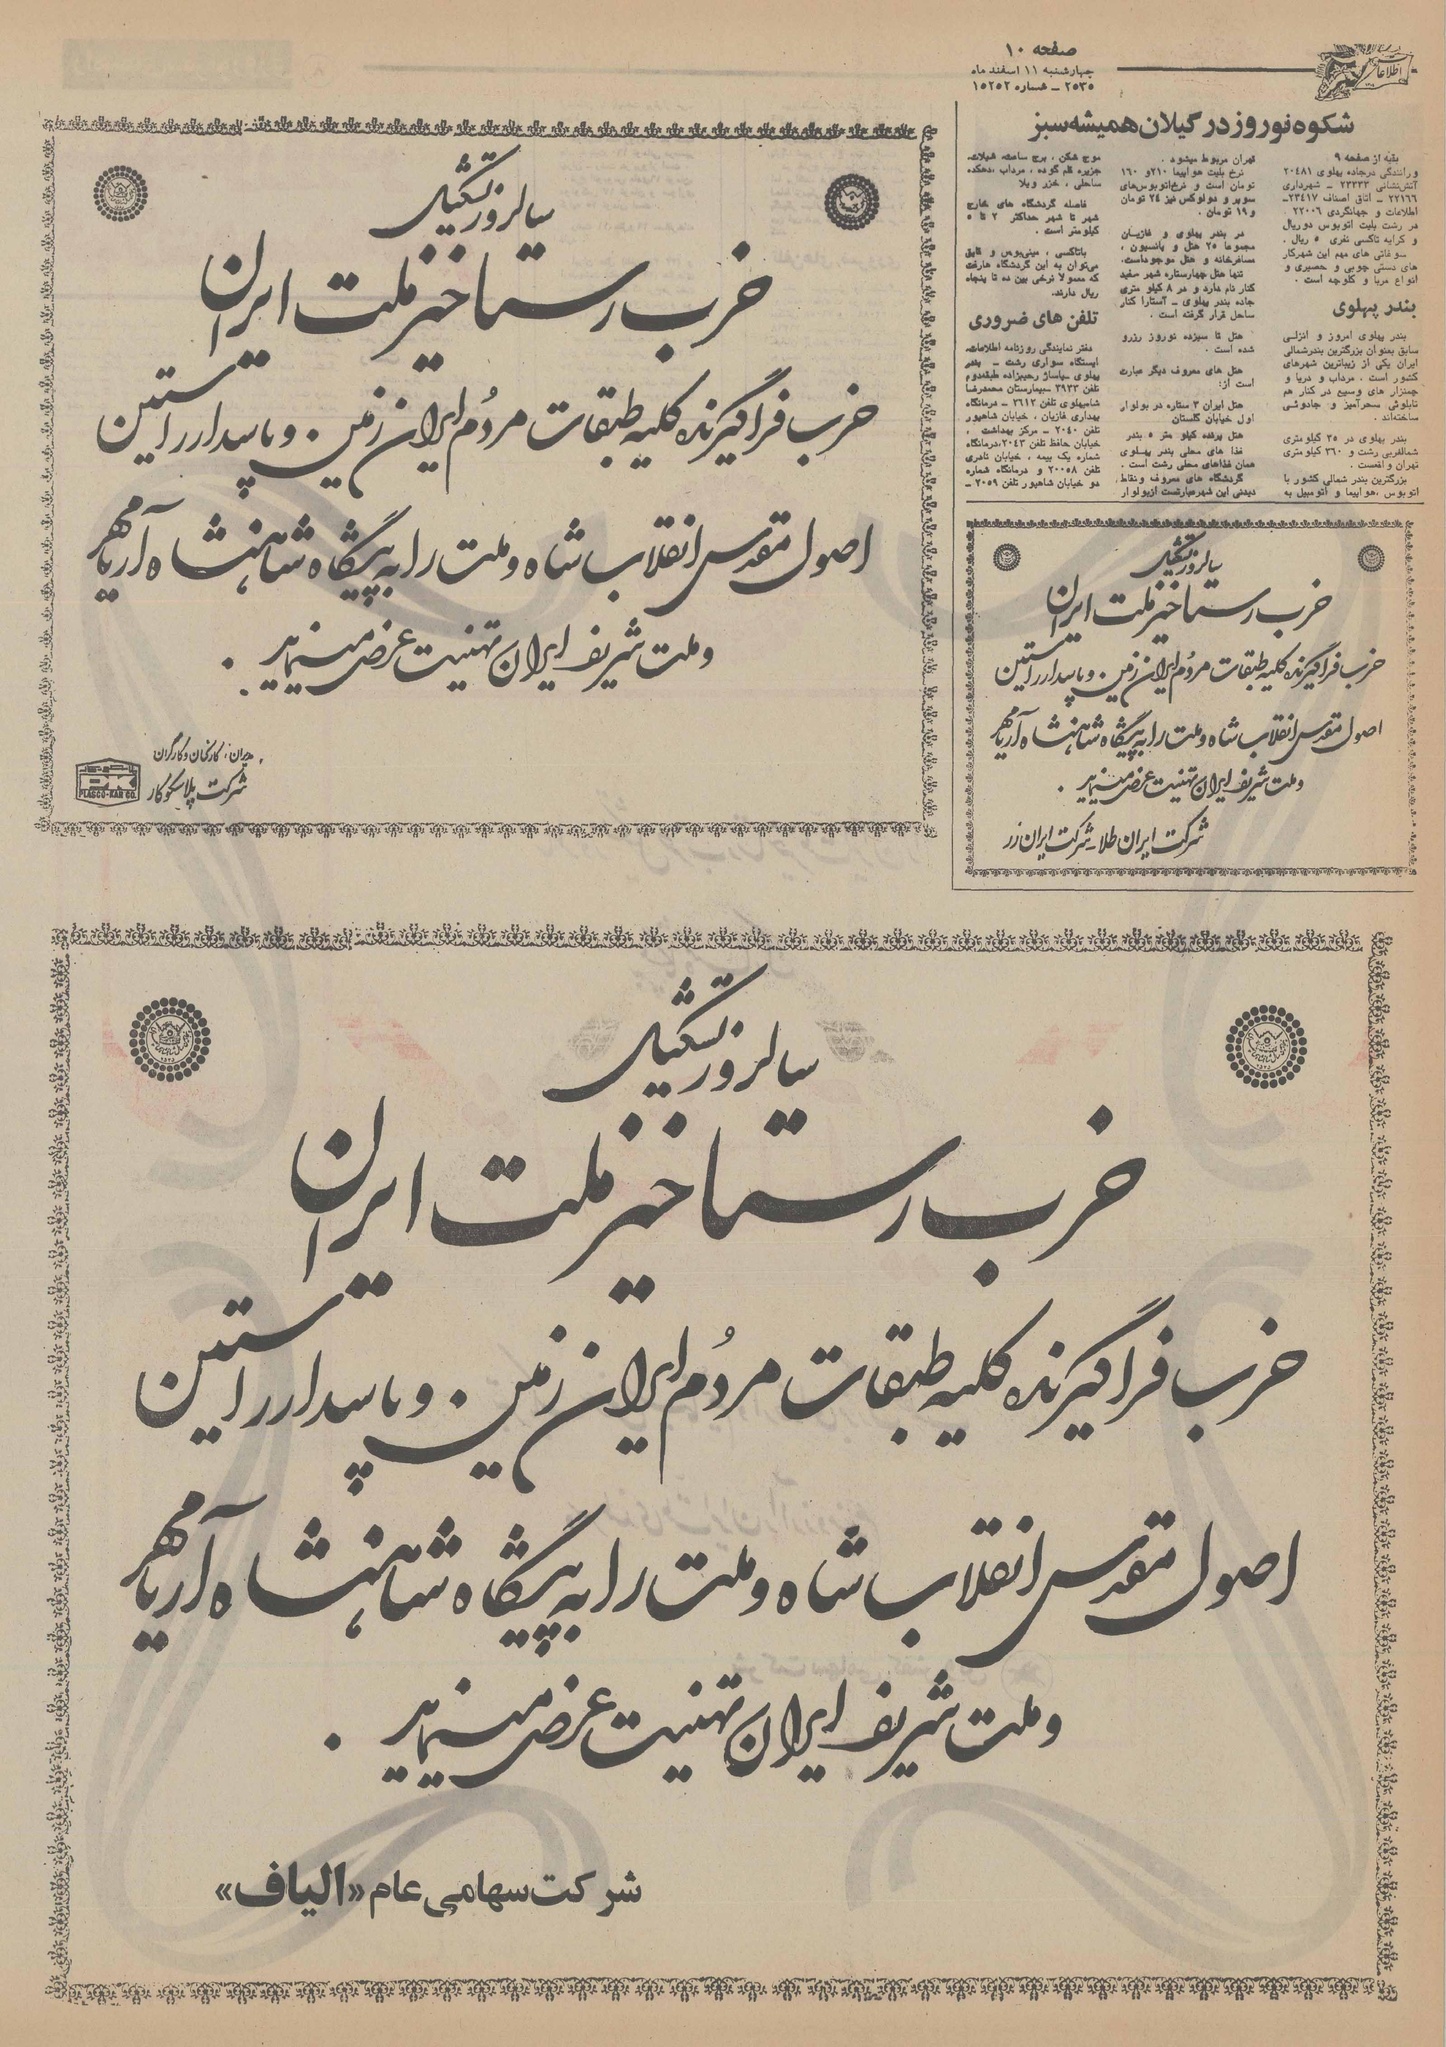 صفحه ۱۰
چهارشنبه ۱۱ اسفند ماه
۲۵۳۵ ــ شماره ۱۵۲۵۲
اطلاعات
شکوه نوروز در گیلان همیشه سبز
بقیه از صفحه ۹
ورانندگی درجاده پهلوی ۲۰۴۸۱
آتش‌نشانی ۲۳۳۳۳ ــ شهرداری
۲۲۱۶۶ ــ اتاق اصناف ۲۳۴۱۷ــ
اطلاعات و جهانگردی ۲۲۰۰۶
در رشت بلیت اتوبوس دوریال
و کرایه تاکسی نفری ۵ ریال .
سوغاتی های مهم این شهرکار
های دستی چوبی و حصیری و
انواع مربا و کلوچه است .
بندر پهلوی
بندر پهلوی امروز و انزلـی
سابق بعنوان بزرگترین بندرشمالی
ایران یکی از زیباترین شهرهای
کشور است . مرداب و دریا و
چمنزار های وسیع در کنار هم
تابلوئی سحرآمیز و جادوئـی
ساخته‌اند .
بندر پهلوی در ۳۵ کیلومتری
شمالغربی رشت و ۳۶۰ کیلومتری
تهران واقعست .
بزرگترین بندر شمالی کشور با
اتوبوس ،هواپیما و اتومبیل به
تهران مربوط میشود .
نرخ بلیت هواپیما ۲۱۰و ۱۶۰
تومان است و نرخ‌اتوبوس‌های
سوپر و دولوکس نیز ۲۴ تومان
و ۱۹ تومان .
در بندر پهلوی و غازیـان
مجموعا ۲۵ هتل و پانسیون ،
مسافرخانه و هتل موجوداست.
تنها هتل چهارستاره شهر سفید
کنار نام دارد و در ۸ کیلو متری
جاده بندر پهلوی ــ آستارا کنار
ساحل قرار گرفته است .
هتل تا سیزده نوروز رزرو
شده است .
هتل های معروف دیگر عبارت
است از:
هتل ایران ۳ ستاره در بولوار
اول خیابان گلستان
غذا های محلی بندر پهـلوی
همان غذاهای محلی رشت است .
گردشگاه های معروف ونقاط
دیدنی این شهرعبارتست ازبولوار
موج شکن ، برج ساعت، شیلات،
جزیره قلم گوده ، مرداب ،دهکده
ساحلی ، خزر ویلا
فاصله گردشگاه های خارج
شهر تا شهر حداکثر ۲ تا ۵
کیلومتر است .
باتاکسی ، مینی‌بوس و قایق
می‌توان به این گردشگاه هارفت
که معمولا نرخی بین ده تا پنجاه
ریال دارند.
تلفن های ضروری
دفتر نمایندگی روزنامه اطلاعات،
ایستگاه سواری رشت ــ بندر
پهلوی ــ پاساژ رجبزاده طبقه‌دوم
تلفن ۳۹۳۳ ــ بیمارستان محمدرضا
شاه‌پهلوی تلفن ۳۶۱۲ ــ درمانگاه
بهداری غازیان ، خیابان شاهپور
تلفن ۲۰۴۰ ــ مرکز بهداشت .
خیابان حافظ تلفن ۲۰۴۳،درمانگاه
شماره یک بیمه ، خیابان نادری
تلفن ۲۰۰۵۸ و درمانگاه شماره
دو خیابان شاهپور تلفن ۲۰۵۹ ــ
سالروز تشکیل
حزب رستاخیز ملت ایران
حزب فراگیرنده کلیه طبقات مردُم ایران زمین . و پاسدار راستین
اصول مقدس انقلاب شاه و ملت را به پیشگاه شاهنشاه آریامهر
و ملت شریف ایران تهنیت عرض مینماید .
مدیران، کارکنان و کارگران
شرکت پلاسکوکار
PK
PLASCO-KAR CO.
سالروز تشکیل
حزب رستاخیز ملت ایران
حزب فراگیرنده کلیه طبقات مردُم ایران زمین . و پاسدار راستین
اصول مقدس انقلاب شاه و ملت را به پیشگاه شاهنشاه آریامهر
و ملت شریف ایران تهنیت عرض مینماید .
شرکت ایران طلا ــ شرکت ایران زر
سالروز تشکیل
حزب رستاخیز ملت ایران
حزب فراگیرنده کلیه طبقات مردُم ایران زمین . و پاسدار راستین
اصول مقدس انقلاب شاه و ملت را به پیشگاه شاهنشاه آریامهر
و ملت شریف ایران تهنیت عرض مینماید .
شرکت سهامی عام «الیاف»